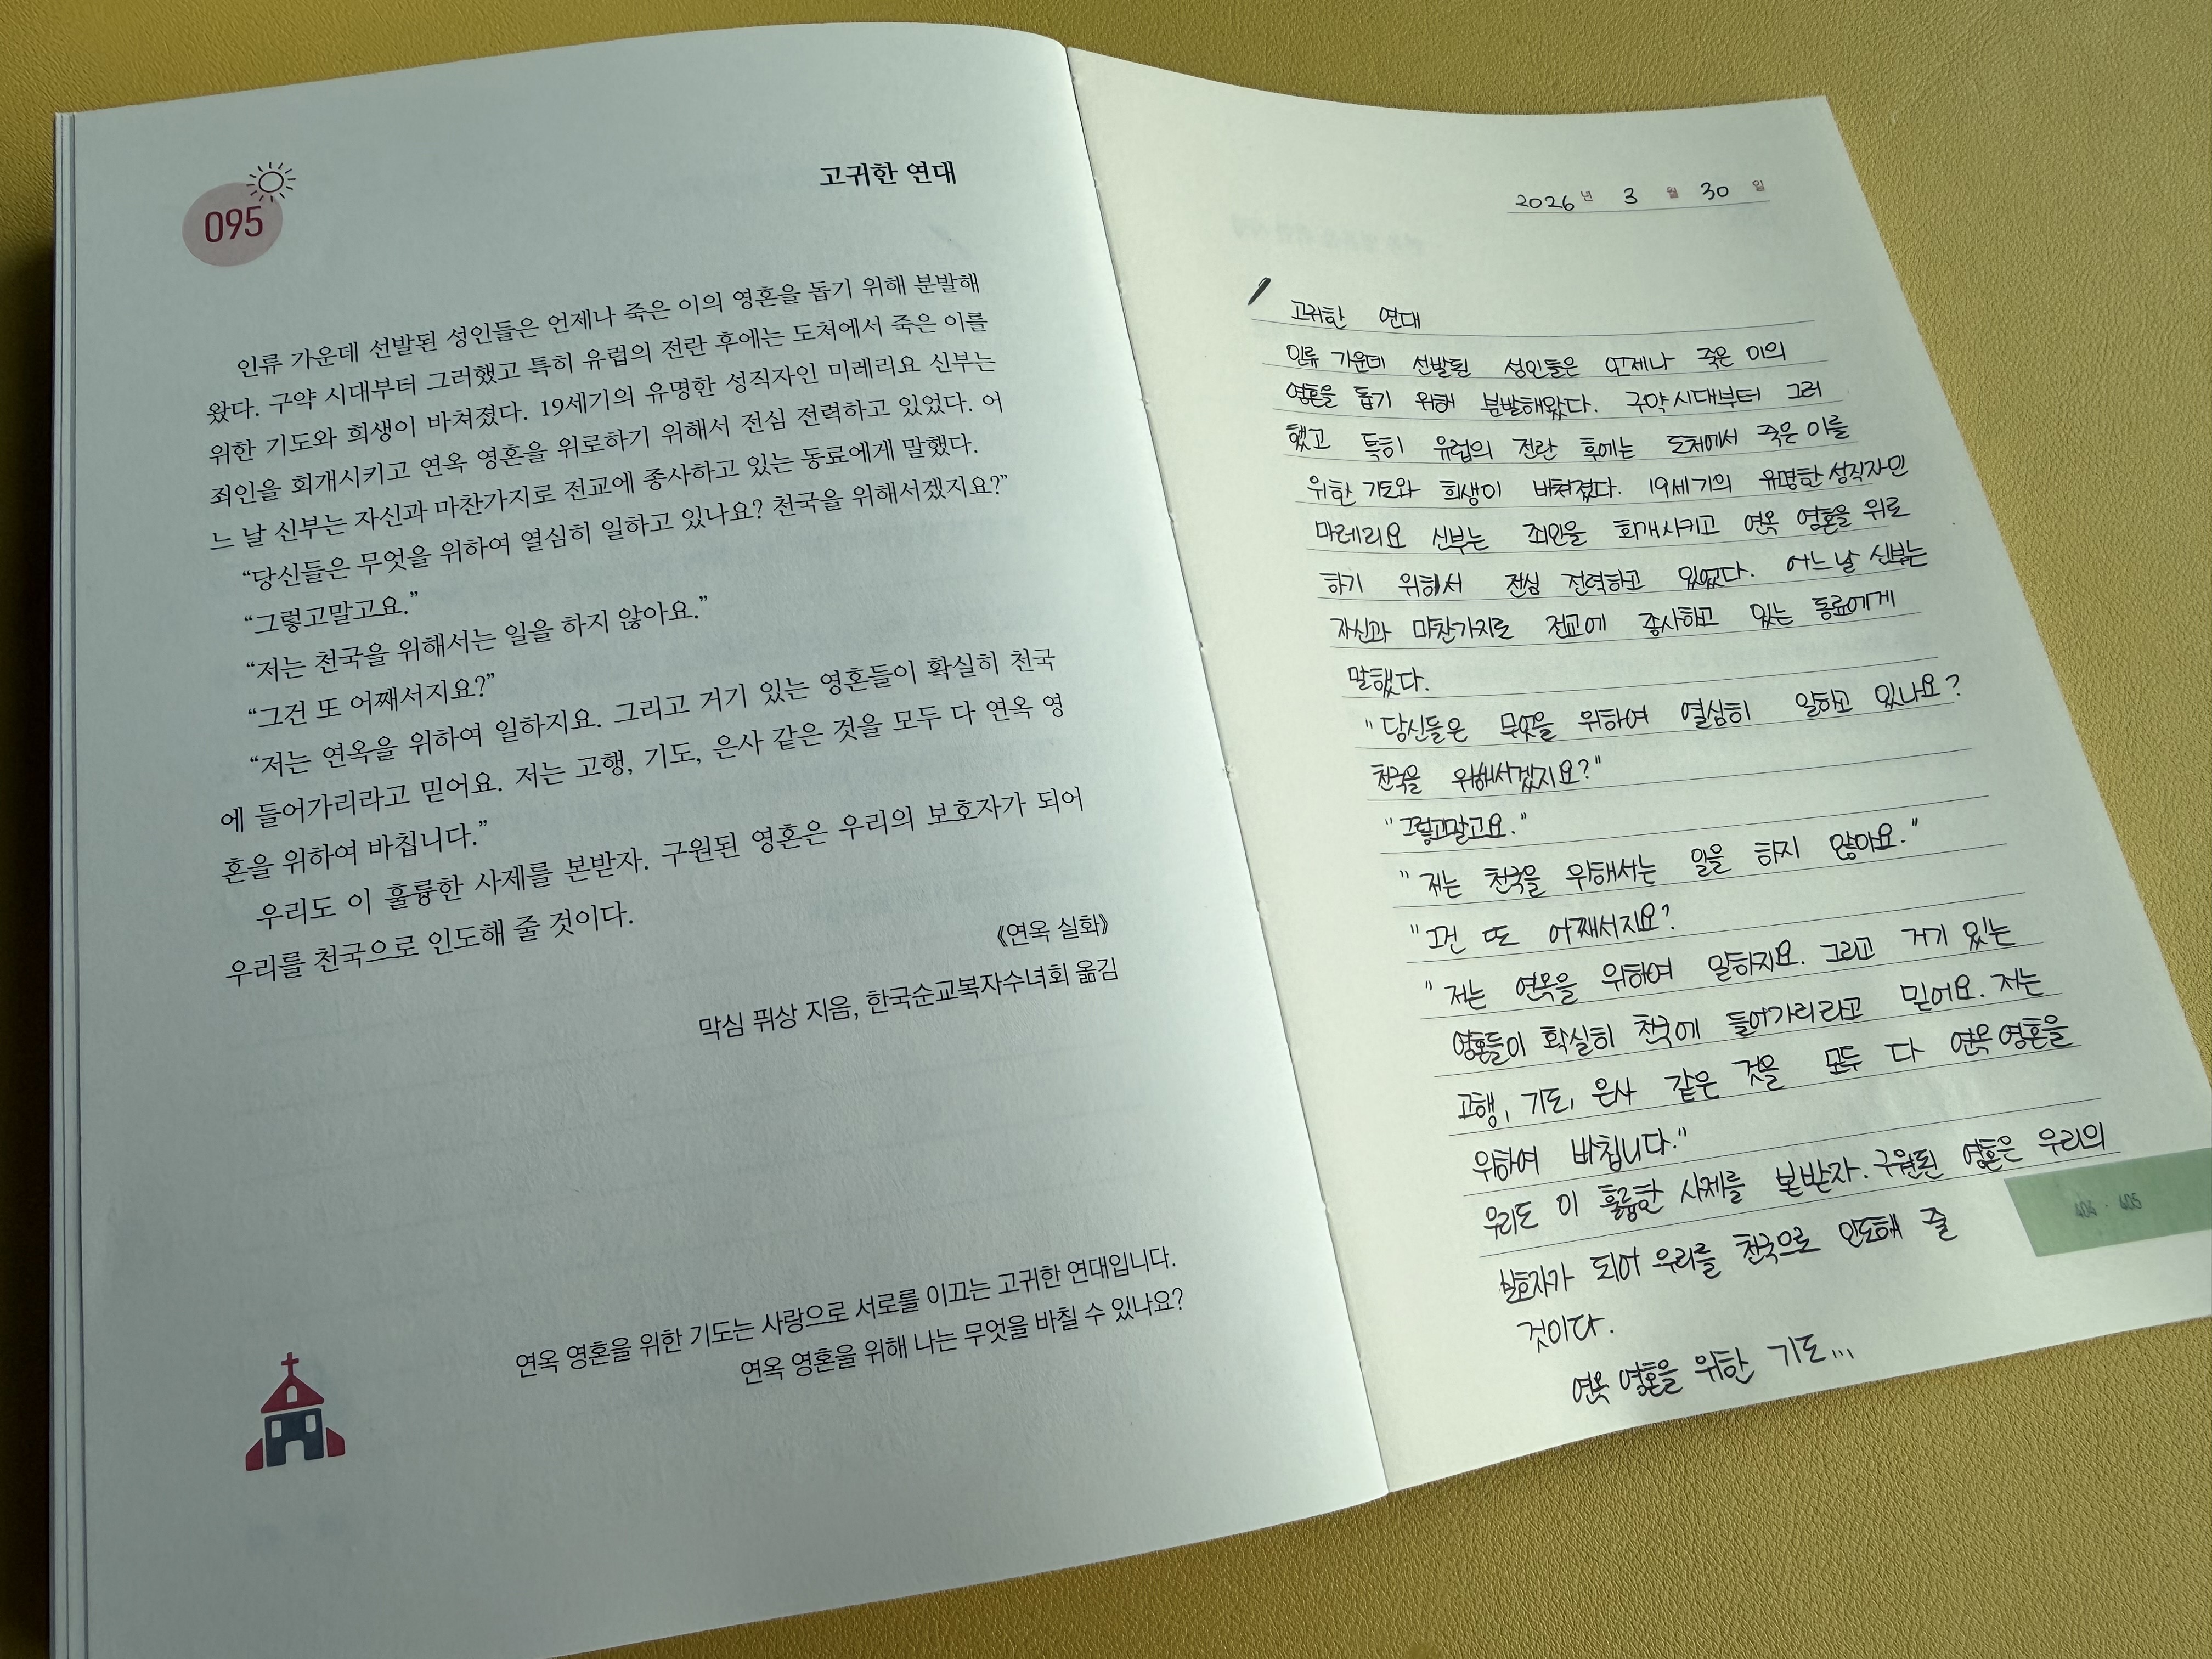 095
고귀한 연대
인류 가운데 선발된 성인들은 언제나 죽은 이의 영혼을 돕기 위해 분발해
왔다. 구약 시대부터 그러했고 특히 유럽의 전란 후에는 도처에서 죽은 이를
위한 기도와 희생이 바쳐졌다. 19세기의 유명한 성직자인 미레리요 신부는
죄인을 회개시키고 연옥 영혼을 위로하기 위해서 전심 전력하고 있었다. 어
느 날 신부는 자신과 마찬가지로 전교에 종사하고 있는 동료에게 말했다.
“당신들은 무엇을 위하여 열심히 일하고 있나요? 천국을 위해서겠지요?”
“그렇고말고요.”
“저는 천국을 위해서는 일을 하지 않아요.”
“그건 또 어째서지요?”
“저는 연옥을 위하여 일하지요. 그리고 거기 있는 영혼들이 확실히 천국
에 들어가리라고 믿어요. 저는 고행, 기도, 은사 같은 것을 모두 다 연옥 영
혼을 위하여 바칩니다.”
우리도 이 훌륭한 사제를 본받자. 구원된 영혼은 우리의 보호자가 되어
우리를 천국으로 인도해 줄 것이다.
《연옥 실화》
막심 퓌상 지음, 한국순교복자수녀회 옮김
연옥 영혼을 위한 기도는 사랑으로 서로를 이끄는 고귀한 연대입니다.
연옥 영혼을 위해 나는 무엇을 바칠 수 있나요?
2026년 3월 30일
고귀한 연대
인류 가운데 선발된 성인들은 언제나 죽은 이의
영혼을 돕기 위해 분발해왔다. 구약시대부터 그러
했고 특히 유럽의 전란 후에는 도처에서 죽은 이를
위한 기도와 희생이 바쳐졌다. 19세기의 유명한 성직자인
마레리요 신부는 죄인을 회개시키고 연옥 영혼을 위로
하기 위해서 전심 전력하고 있었다. 어느날 신부는
자신과 마찬가지로 전교에 종사하고 있는 동료에게
말했다.
"당신들은 무엇을 위하여 열심히 일하고 있나요?
천국을 위해서겠지요?"
"그렇고말고요."
"저는 천국을 위해서는 일을 하지 않아요."
"그건 또 어째서지요?
"저는 연옥을 위하여 일하지요. 그리고 거기 있는
영혼들이 확실히 천국에 들어가리라고 믿어요. 저는
고행, 기도, 은사 같은 것을 모두 다 연옥 영혼을
위하여 바칩니다."
우리도 이 훌륭한 사제를 본받자. 구원된 영혼은 우리의
보호자가 되어 우리를 천국으로 인도해 줄
것이다.
연옥 영혼을 위한 기도...
404 · 405